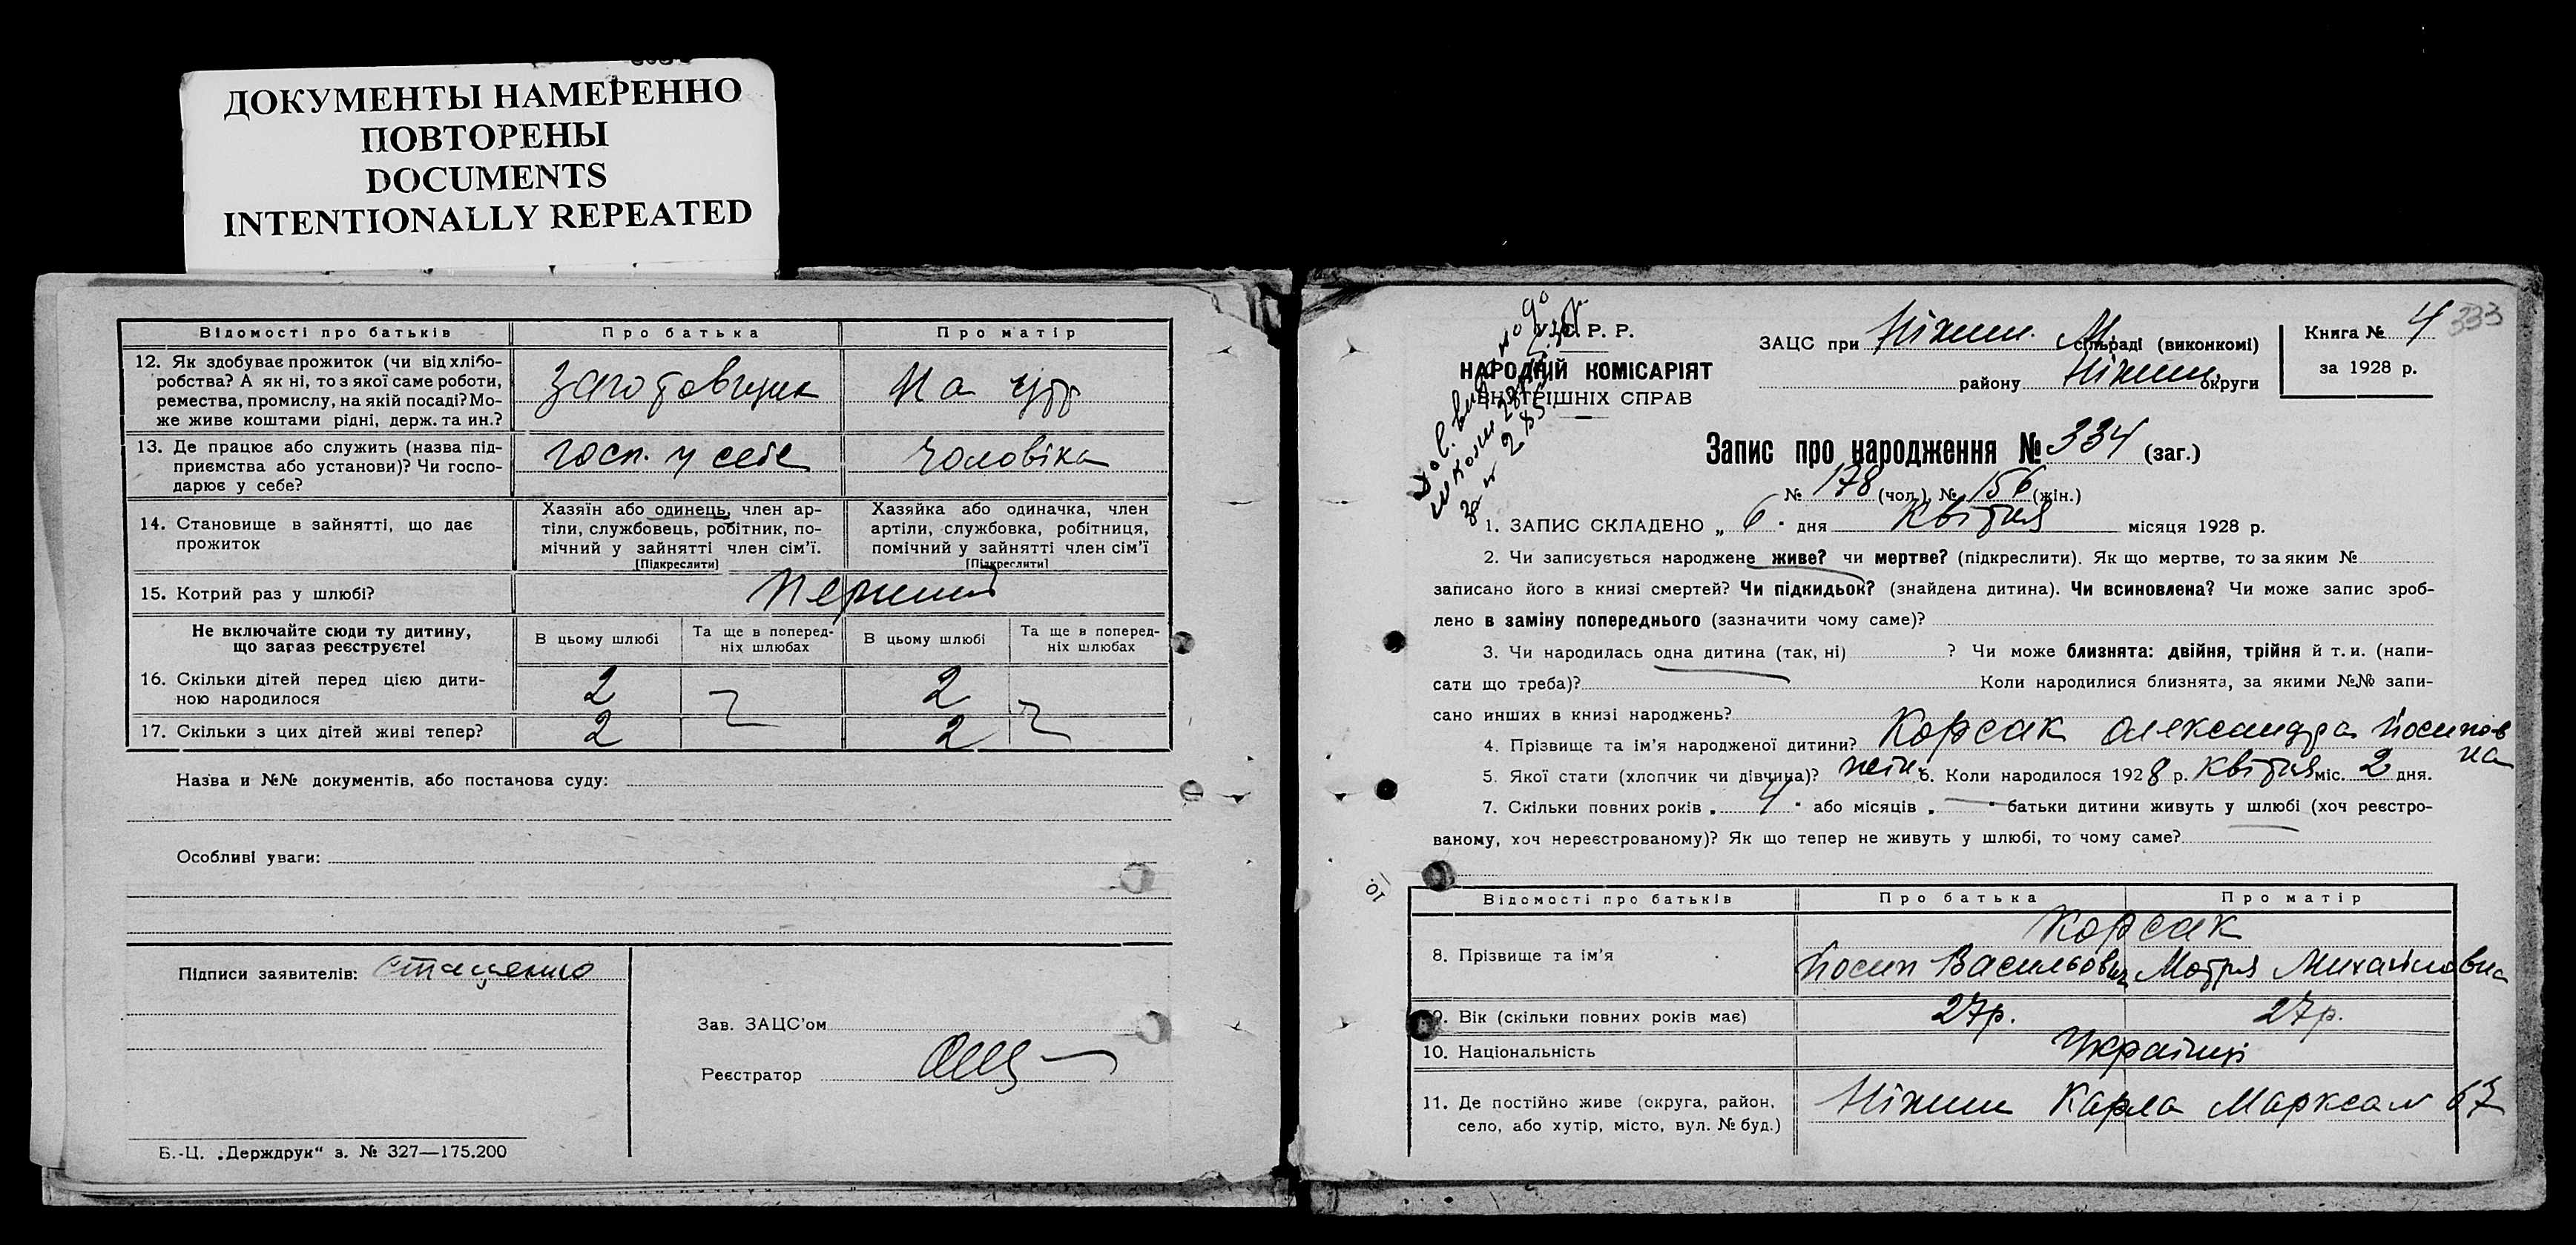 ДОКУМЕНТЫ НАМЕРЕННО
ПОВТОРЕНЫ
DOCUMENTS
INTENTIONALLY REPEATED
Відомості про батьків Про батька Про матір
12. Як здобуває прожиток (чи від хлібо-
робства? А як ні, то з якої саме роботи,
ремества, промислу, на якій посаді? Мо-
же живе коштами рідні, держ. та ин.?
Заготовщик На утр
13. Де працює або служить (назва під-
приємства або установи)? Чи госпо-
дарює у себе?
госп. у себе чоловіка
14. Становище в зайнятті, що дає
прожиток
Хазяїн або одинець, член ар-
тіли, службовець, робітник, по-
мічний у зайнятті член сім'ї.
[Підкреслити]
Хазяйка або одиначка, член
артіли, службовка, робітниця,
помічний у зайнятті член сім'ї
[Підкреслити]
15. Котрий раз у шлюбі? перший
Не включайте сюди ту дитину,
що зараз реєструєте!
В цьому шлюбі Та ще в поперед-
ніх шлюбах В цьому шлюбі Та ще в поперед-
ніх шлюбах
16. Скільки дітей перед цією дити-
ною народилося 2 2
17. Скільки з цих дітей живі тепер? 2 2
Назва и №№ документів, або постанова суду:
Особливі уваги:
Підписи заявителів: Стаценко
Зав. ЗАЦС'ом
Реєстратор
Б.-Ц. „Держдрук“ з. № 327—175.200
У. С. Р. Р.
НАРОДНІЙ КОМІСАРІЯТ
ВНУТРІШНІХ СПРАВ
ЗАЦС при Ніжин. М. сільраді (виконкомі)
району Ніжин. округи
Книга № 4
за 1928 р.
333
Запис про народження № 334 (заг.)
№ 178 (чол.), № 156 (жін.)
1. ЗАПИС СКЛАДЕНО „ 6 “ дня Квітня місяця 1928 р.
2. Чи записується народжене живе? чи мертве? (підкреслити). Як що мертве, то за яким №
записано його в книзі смертей? Чи підкидьок? (знайдена дитина). Чи всиновлена? Чи може запис зроб-
лено в заміну попереднього (зазначити чому саме)?
3. Чи народилась одна дитина (так, ні) ? Чи може близнята: двійня, трійня й т. и. (напи-
сати що треба)? Коли народилися близнята, за якими №№ запи-
сано инших в книзі народжень?
4. Прізвище та ім'я народженої дитини? Корсак Олександра Йосипов
на
5. Якої стати (хлопчик чи дівчина)? жін. 6. Коли народилося 1928 р. квітня міс. 2 дня.
7. Скільки повних років „ 4 “ або місяців „ — “ батьки дитини живуть у шлюбі (хоч реєстро-
ваному, хоч нереєстрованому)? Як що тепер не живуть у шлюбі, то чому саме?
10.
Відомості про батьків Про батька Про матір
Корсак
8. Прізвище та ім'я Йосип Васильович Мотря Михайловна
9. Вік (скільки повних років має) 27р. 27р.
10. Національність Українці
11. Де постійно живе (округа, район,
село, або хутір, місто, вул. № буд.)
Ніжин Карла Маркса № 67